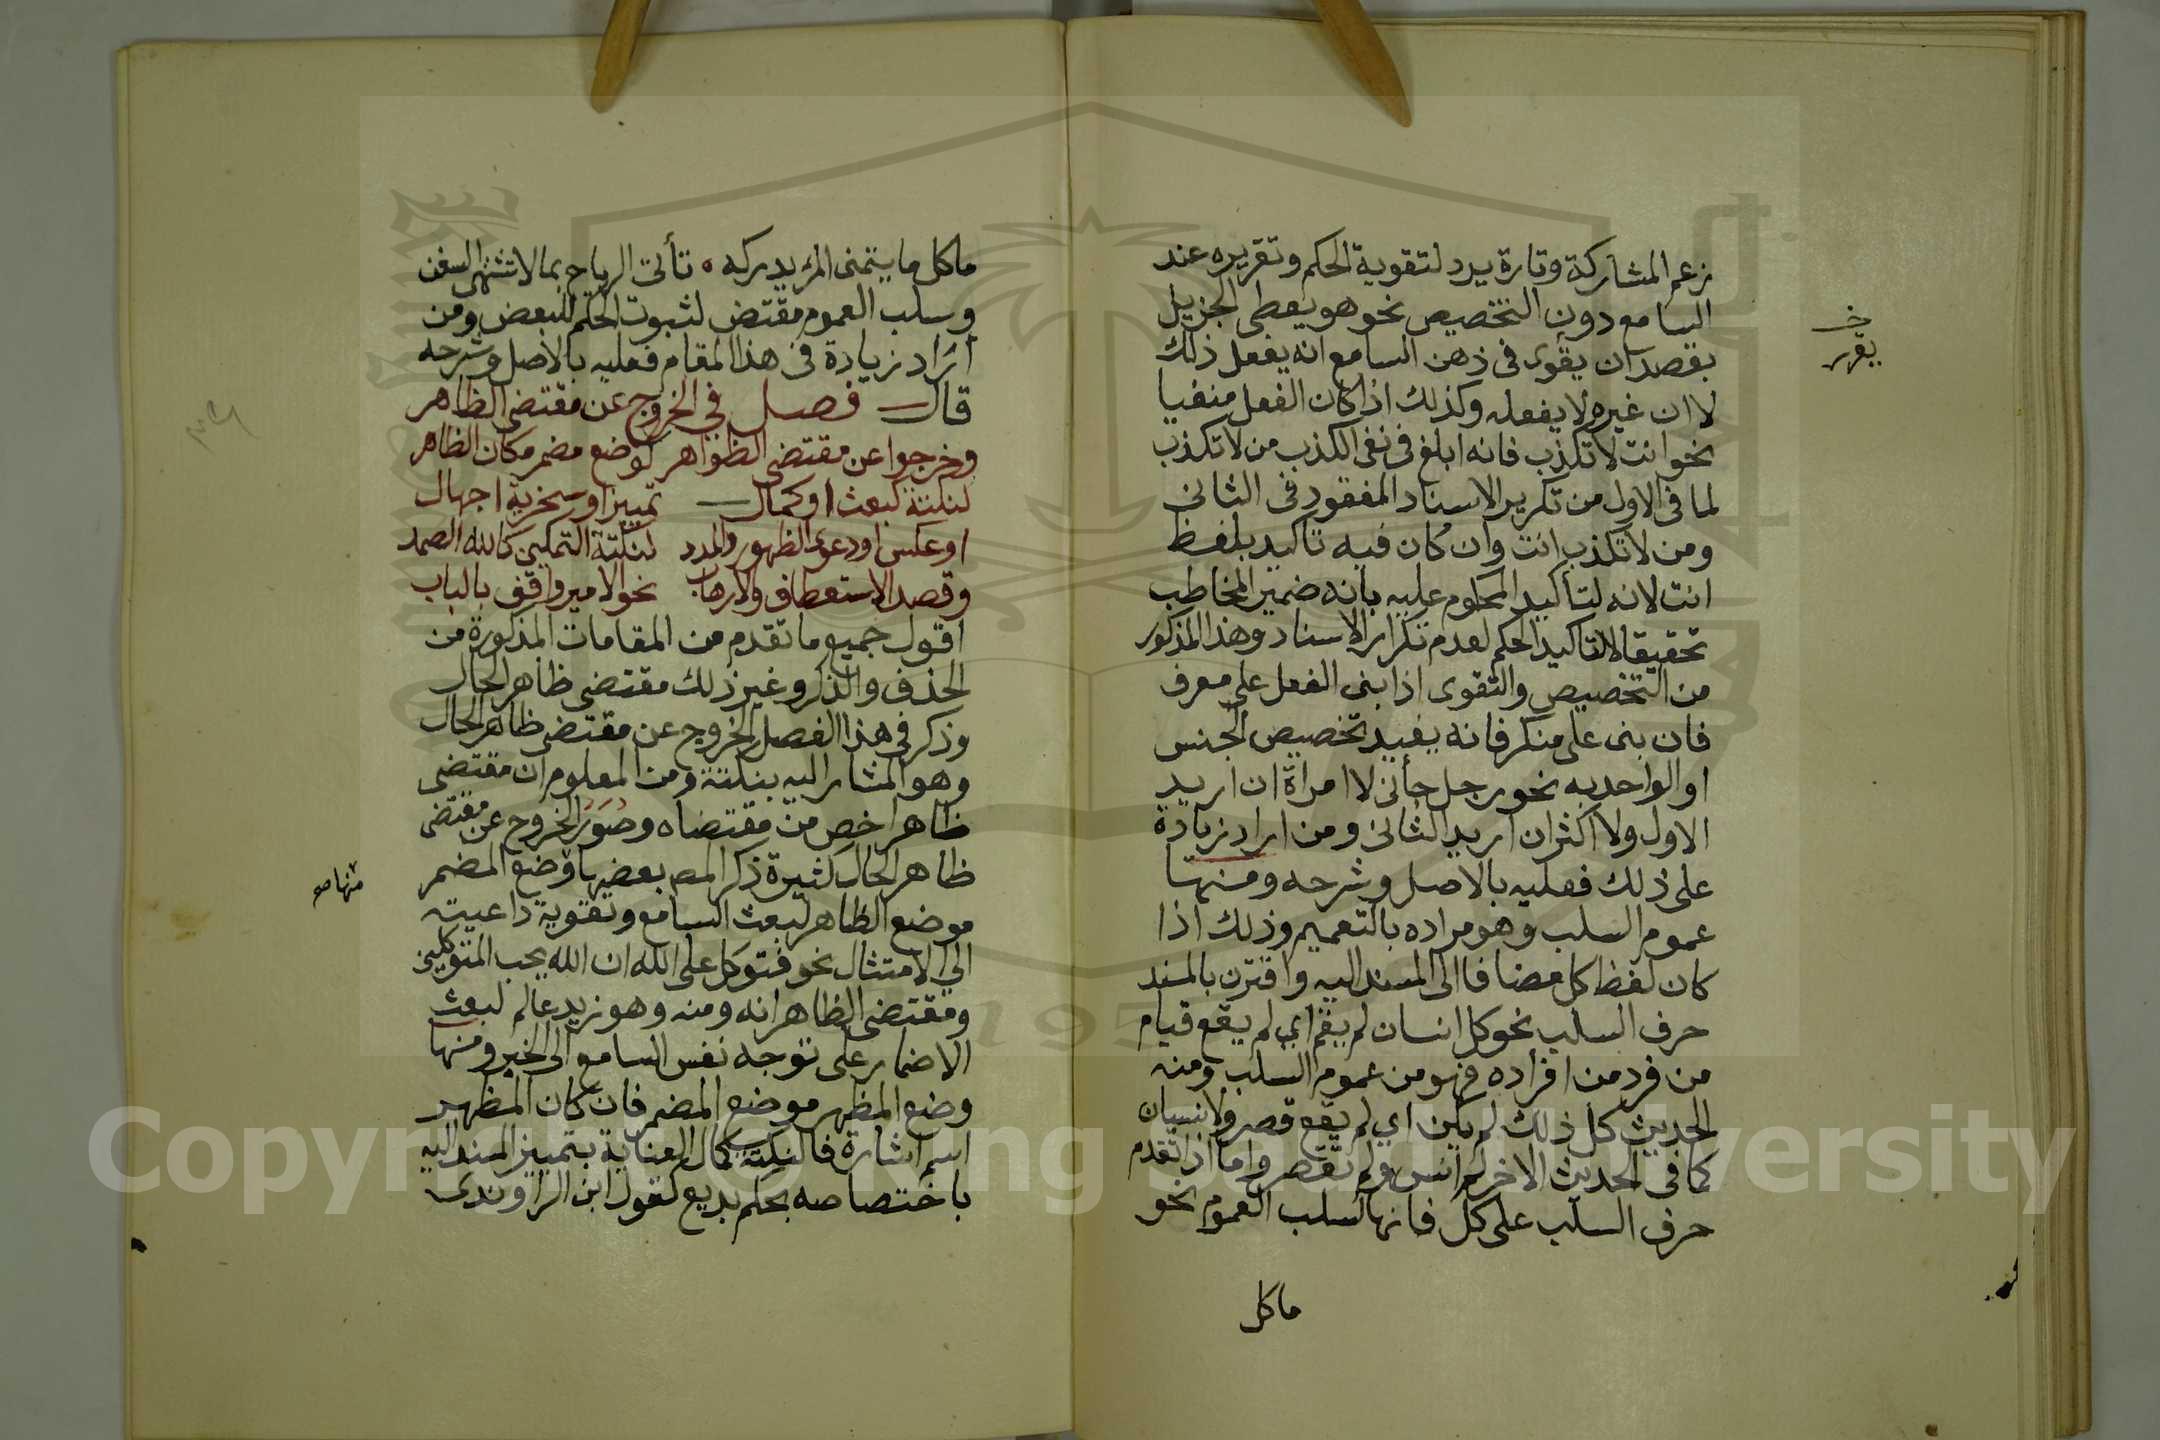 زعم المشاركة وتارة يرد لتقوية الحكم وتقريره عند
السامع دون التخصيص نحو هو يعطي الجزيل
بقصد ان يقوى في ذهن السامع انه يفعل ذلك
لا ان غيره لا يفعله وكذلك اذا كان الفعل منفيا
نحو انت لا تكذب فانه ابلغ في نفي الكذب من لا تكذب
لما في الاول من تكرير الاسناد المفقود في الثاني
ومن لا تكذب انت وان كان فيه تاكيد بلفظ
انت لانه لتأكيد المحكوم عليه بانه ضمير المخاطب
تحقيقا لا لتاكيد الحكم لعدم تكرار الاسناد وهذا المذكور
من التخصيص والتقوى اذا بنى الفعل على معرف
فان بنى على منكر فانه يفيد تخصيص الجنس
او الواحد به نحو رجل جأني لا امراة ان اريد
الاول ولا اكثر ان اريد الثاني ومن اراد زيادة
على ذلك فعليه بالاصل وشرحه ومنها
عموم السلب وهو مراده بالتعميم وذلك اذا
كان لفظ كل مضافا الى المسند اليه واقترن بالمسند
حرف السلب نحو كل انسان لم يقم اي لم يقع قيام
من فرد من افراده فهو من عموم السلب ومنه
الحديث كل ذلك لم يكن اي لم يقع قصر ولا نسيان
كما في الحديث الاخر لم انس ولم تقصر واما اذا تقدم
حرف السلب على كل فانها لسلب العموم نحو
ماكل
خـ
يقرر
ماكل ما يتمنى المرء يدركه ٥ تأتي الرياح بما لا تشتهى السفن
وسلب العموم مقتض لثبوت الحكم للبعض ومن
اراد زيادة في هذا المقام فعليه بالاصل وشرحه
قال فصل في الخروج عن مقتضى الظاهر
وخرجوا عن مقتضى الظواهر كوضع مضمر مكان الظاهر
لنكتة كبعث او كمال تمييز او سخرية اجهال
او عكس او دعوى الظهور والمدد لنكتة التمكين كالله الصمد
وقصد الاستعطاف والارهاب نحو الامير واقف بالباب
اقول جميع ما تقدم من المقامات المذكورة من
الحذف والذكر وغير ذلك مقتضى ظاهر الحال
وذكر في هذا الفصل الخروج عن مقتضى ظاهر الحال
وهو المشار اليه بنكتة ومن المعلوم ان مقتضى
ظاهر اخص من مقتضاه وصور الخروج عن مقتضى
ظاهر الحال كثيرة ذكر المصـ بعضها وضع المضمر
موضع الظاهر لبعث السامع وتقوية داعيته
الي الامتثال نحو فتوكل على الله ان الله يحب المتوكلين
ومقتضى الظاهر انه ومنه وهو زيد عالم لبعث
الاضمار على توجه نفس السامع الى الخبر ومنها
وضع المظهر موضع المضمر فان كان المظهر
اسم اشارة فالنكتة كمال العناية بتمييز المسند اليه
باختصاصه بحكم بديع كقول ابن الراوندى
منها صح
Copyright © King Saud University